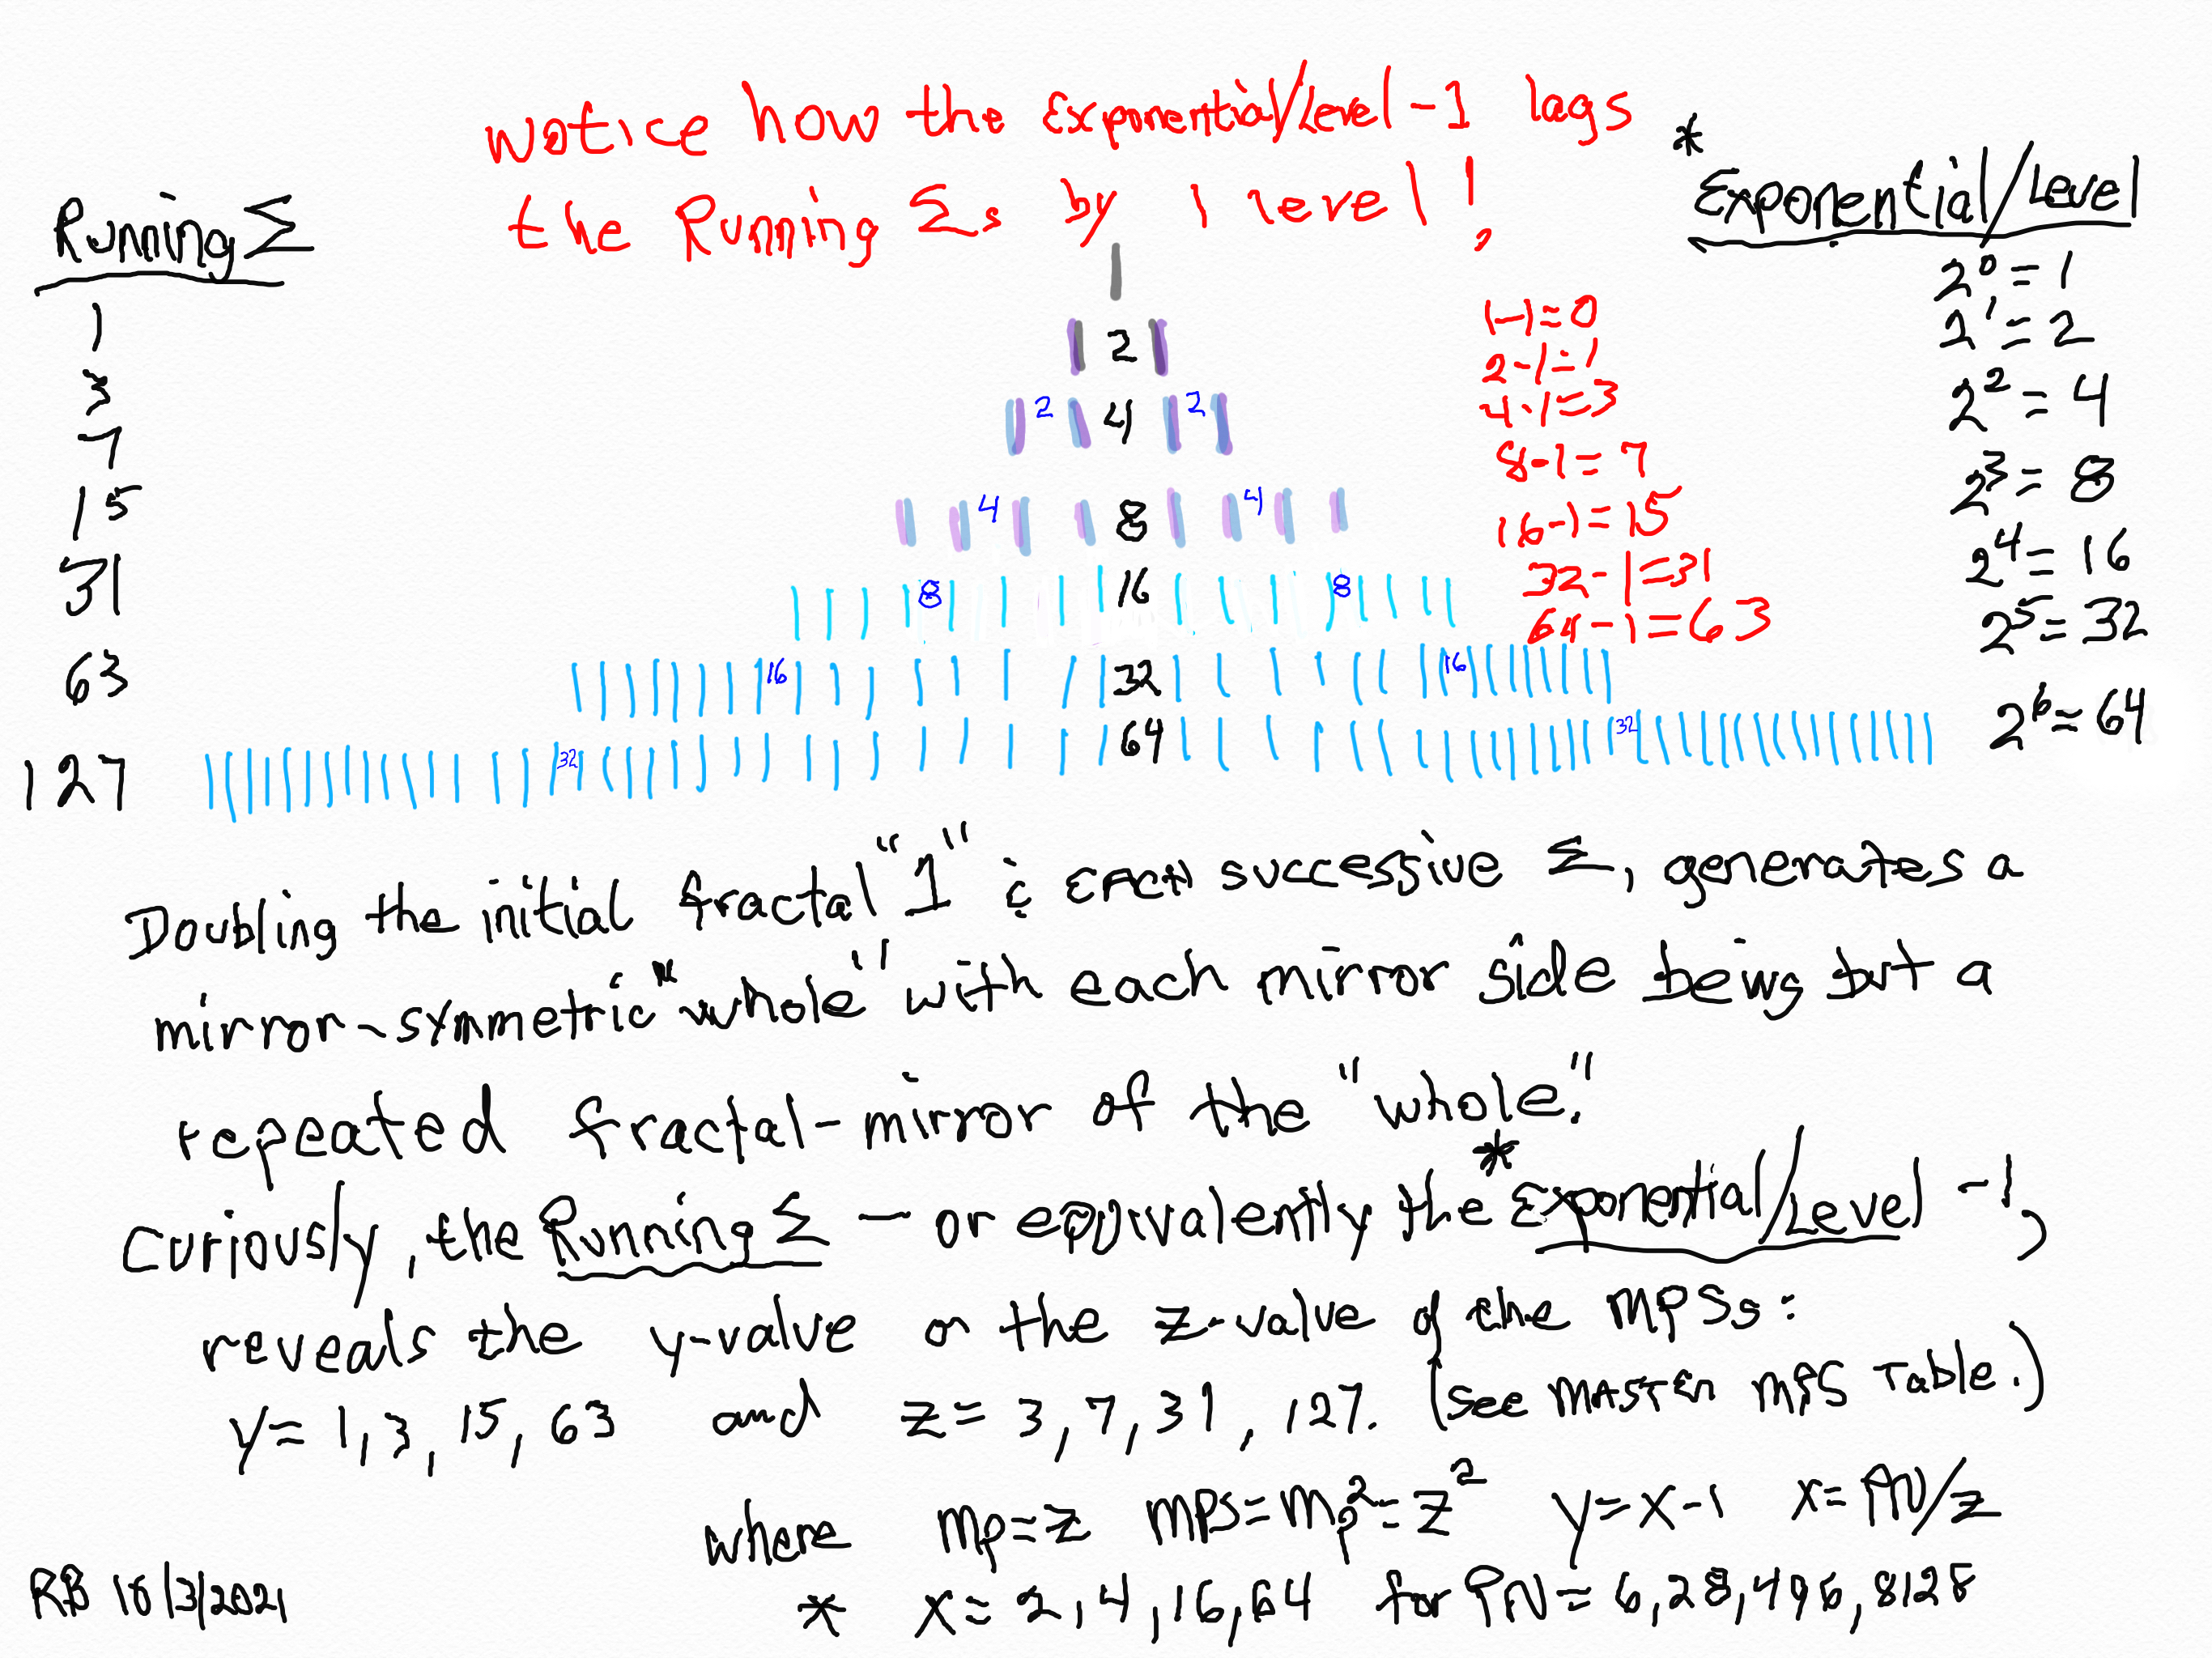 Notice how the Exponential/Level-1 lags
the Running Σs by 1 level!
Running Σ
*Exponential/Level
1
3
7
15
31
63
127
1
2
2 4 2
4 8 4
8 16 8
16 32 16
32 64 32
1-1=0
2-1=1
4-1=3
8-1=7
16-1=15
32-1=31
64-1=63
2⁰=1
2¹=2
2²=4
2³=8
2⁴=16
2⁵=32
2⁶=64
Doubling the initial fractal "1" & EACH successive Σ, generates a
mirror-symmetric "whole" with each mirror side being but a
repeated fractal-mirror of the "whole."
Curiously, the Running Σ - or equivalently the *Exponential/Level -1,
reveals the y-value or the z-value of the MPSs:
y= 1, 3, 15, 63 and z= 3, 7, 31, 127. (See MASTER MPS Table.)
where Mp=z MPS=Mp²=z² y=x-1 x=PN/z
* x= 2, 4, 16, 64 for PN= 6, 28, 496, 8128
RB 10/3/2021